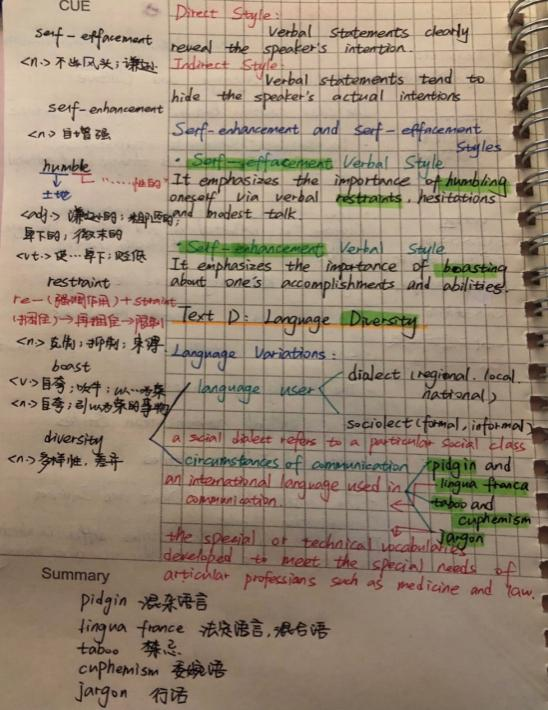 CUE
serf-effacement
<n.> 不出风头；谦逊
serf-enhancement
<n> 自增强
humble
土地
<vt.> 使…卑下；贬低
restraint
re-(强调作用)+straint
(捆住)→再捆住→限制
<n> 克制；抑制；束缚
boast
diversity
<n.> 多样性，差异
Direct Style:
Verbal statements clearly
reveal the speaker's intention.
Indirect Style:
Verbal statements tend to
hide the speaker's actual intentions
Serf-enhancement and serf-effacement
Styles
· Serf-effacement Verbal Style
It emphasizes the importance of humbling
oneself via verbal restraints, hesitations
and modest talk.
· Self-enhancement Verbal Style
It emphasizes the importance of boasting
about one's accomplishments and abilities.
Text D: Language Diversity
Language Variations:
language user
dialect (regional. local.
national)
sociolect (formal, informal)
a social dialect refers to a particular social class
circumstances of communication
pidgin and
lingua franca
taboo and
cuphemism
jargon
an international language used in
communication.
the special or technical vocabularies
developed to meet the special needs of
articular professians such as medicine and law.
Summary
pidgin 混杂语言
lingua france 法定语言，混合语
taboo 禁忌
cuphemism 委婉语
jargon 行话